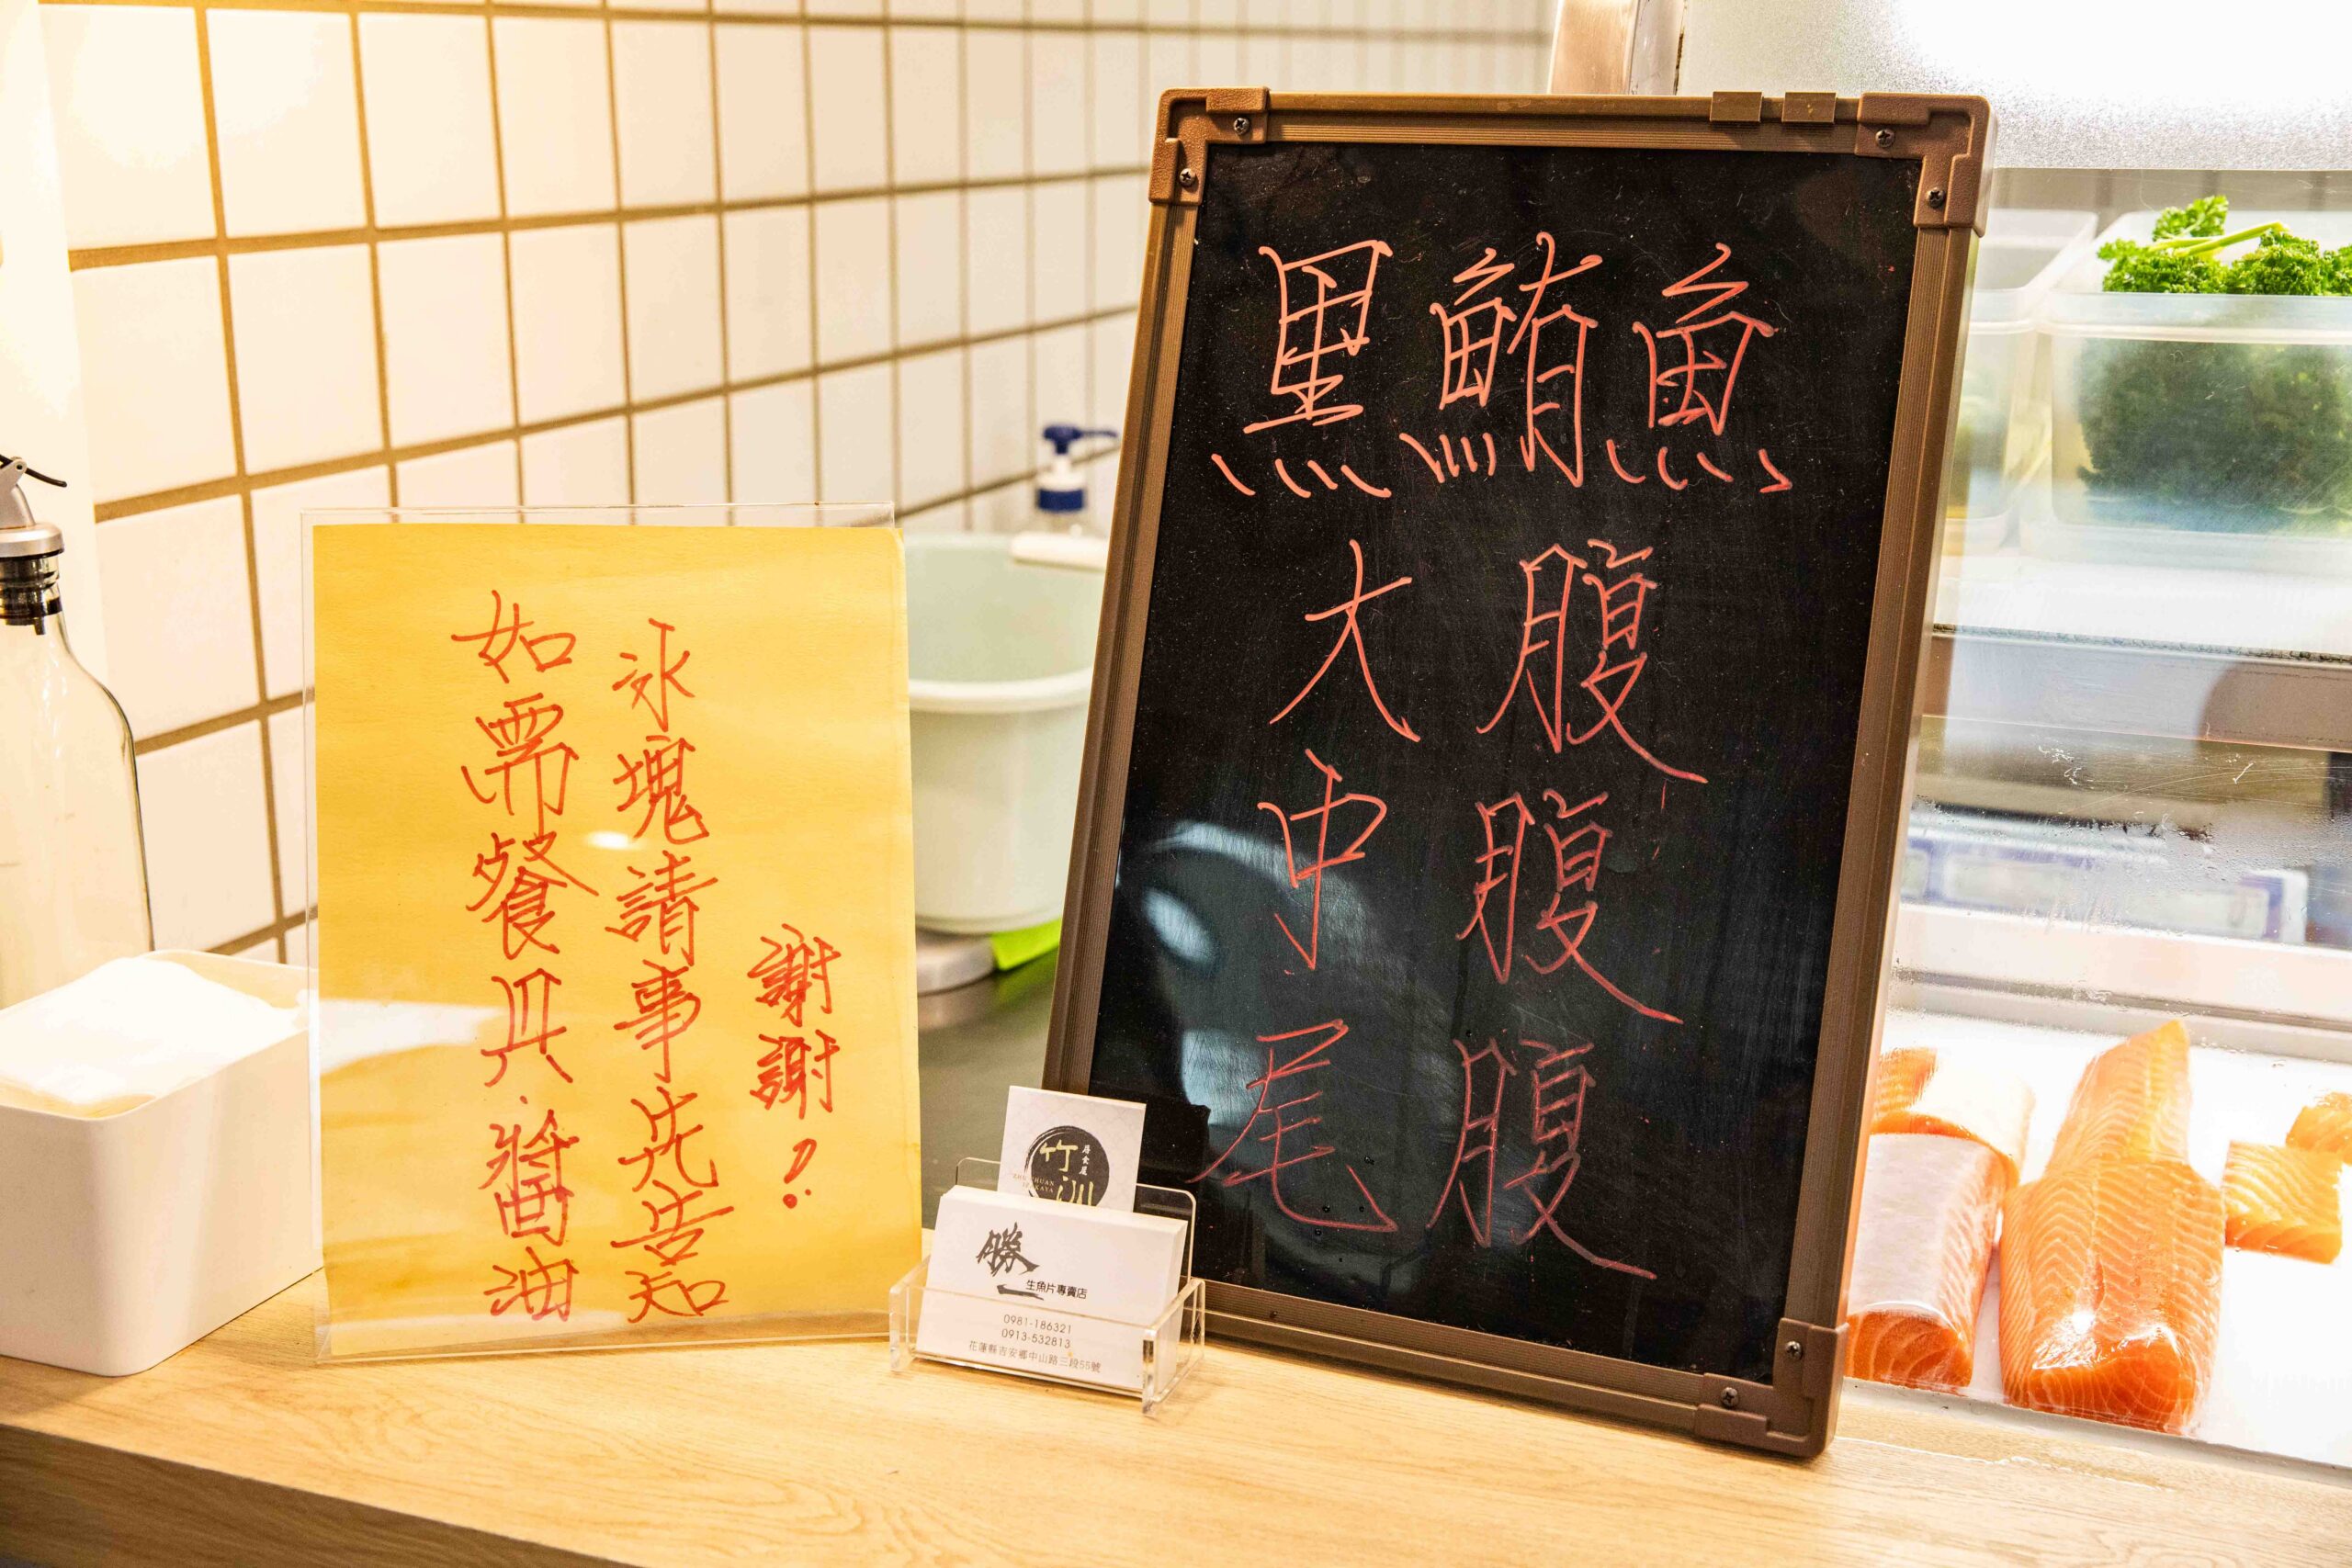 如需餐具.醬油
冰塊請事先告知
謝謝!
黑鮪魚
大腹
中腹
尾腹
竹川
勝
生魚片專賣店
0981-186321
0913-532813
花蓮縣吉安鄉中山路三段55號